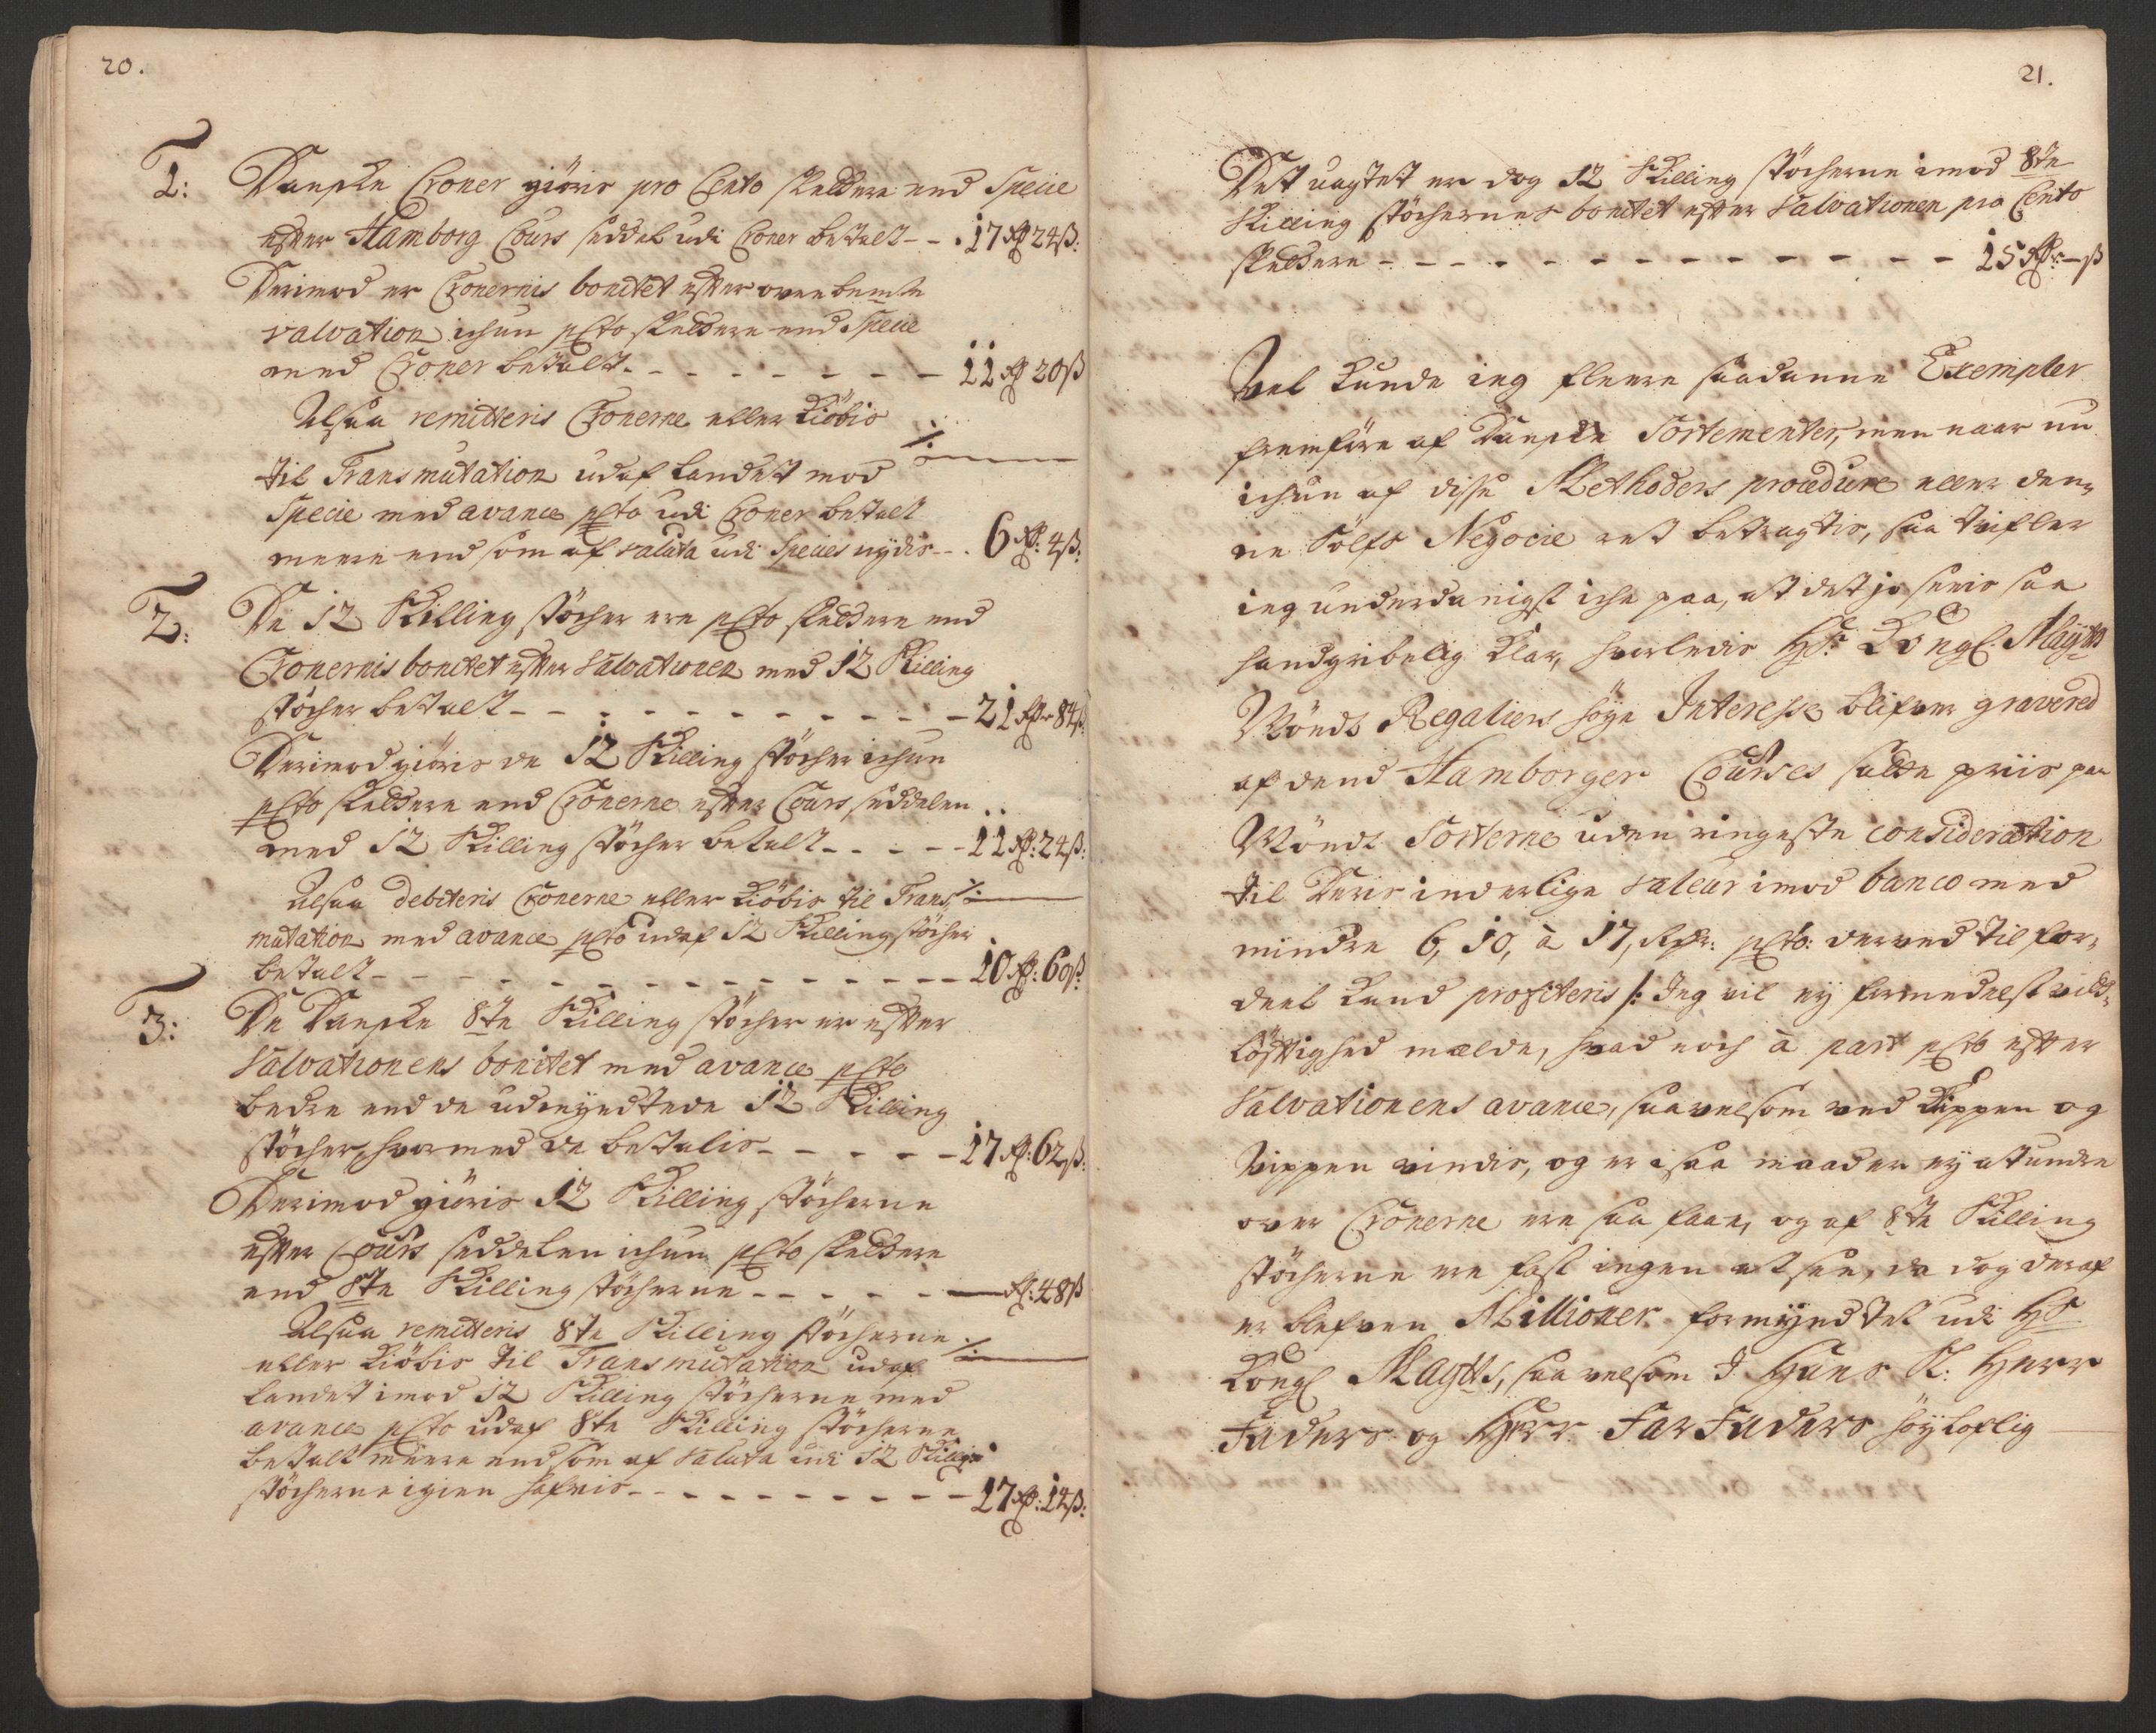 20.
1: Danske Croner giöris pro Cento slettere end Specie
efter Hamborg Cours seddel udi Croner betalt - - 17 Rdr 24 ß:
Derimod er Cronernis bonitet efter ovenbemte
valvation ichun pCto slettere end Specie
med Croner betalt - - - - - - - 11 Rdr 20 ß
Alsaa remitteris Cronerne eller kiöbis ./.
til Transmutation udaf Landet mod
Specie med avance pCto udi Croner betalt
meere end som af valuta udi Species nydis - - 6 Rdr: 4 ß:
2: De 12 Skilling stöcher ere pCto slettere end
Cronernis bonitet efter Valvationen med 12 Skilling
stöcher betalt - - - - - - - - - - 21 Rdr 84 ß
Derimod giöris de 12 Skilling stöcher ichun
pCto slettere end Cronerne efter Cours seddelen
med 12 Skilling stöcher betalt - - - - - 11 Rdr: 24 ß:
Alsaa debiteris Cronerne eller kiöbis til Trans- ./.
mutation med avance pCto udaf 12 Skilling stöcher
betalt - - - - - - - - - - - - - 10 Rdr: 60 ß:
3: De Danske 8te Skilling stöcher er efter
Valvationens bonitet med avance pCto
bedre end de udmyndtede 12 Skilling
stöcher, hvormed de betalis - - - - - 17 Rdr: 62 ß:
Derimod giöris 12 Skilling stöcherne
efter Cours seddelen ichun pCto slettere
end 8te Skilling stöcherne - - - - - — Rdr: 48 ß
Alsaa remitteris 8te Skilling stöcherne ./.
eller kiöbis til Transmutation udaf
Landet imod 12 Skilling stöcherne med
avance pCto udaf 8te Skilling stöcherne
betalt meere end som af Valuta udi 12 Skilling
stöcherne igien hafvis - - - - - - - - - 17 Rdr: 14 ß:
21.
Det uagtet er dog 12 Skilling stöcherne imod 8te
Skilling stöchernes bonitet efter Valvationen pro Cento
slettere - - - - - - - - - - - - - - 15 Rdr: — ß
Vel kunde ieg fleere saadanne Exempler
fremföre af Danske Sortementer, men naar nu
ichun af disse Methoders procedure eller den-
ne Sölfs Negocie ret betragtis, saa tvifler
ieg underdanigst iche paa, at det jo seeis saa
handgribelig klar, hvorledis Hs: Kongl: Mayts
Möndt Regaliers höye Interesse blifver gravered
af dend Hamborger Courses satte priis paa
Möndt Sorterne uden ringeste consideration
til Deris inderlige valeur imod banco med
mindre 6, 10, à 17, Rdr: pCto: derved til for-
deel kand profiteris /: Ieg vil ey formedelst vidt-
löftighed melde, hvad noch à part pCto efter
Valvationens avance, saavelsom ved Kippen og
Vippen vindis, og er i saa maader ey at undre
over Cronerne ere saa faae, og af 8te Skilling
stöcherne ere fast ingen at see, da dog deraf
er blefven Millioner formyndtet udi Hs
Kongl Mayts, saavelsom I Hans S: Herr
Faders og Herr Far Faders höyloflig